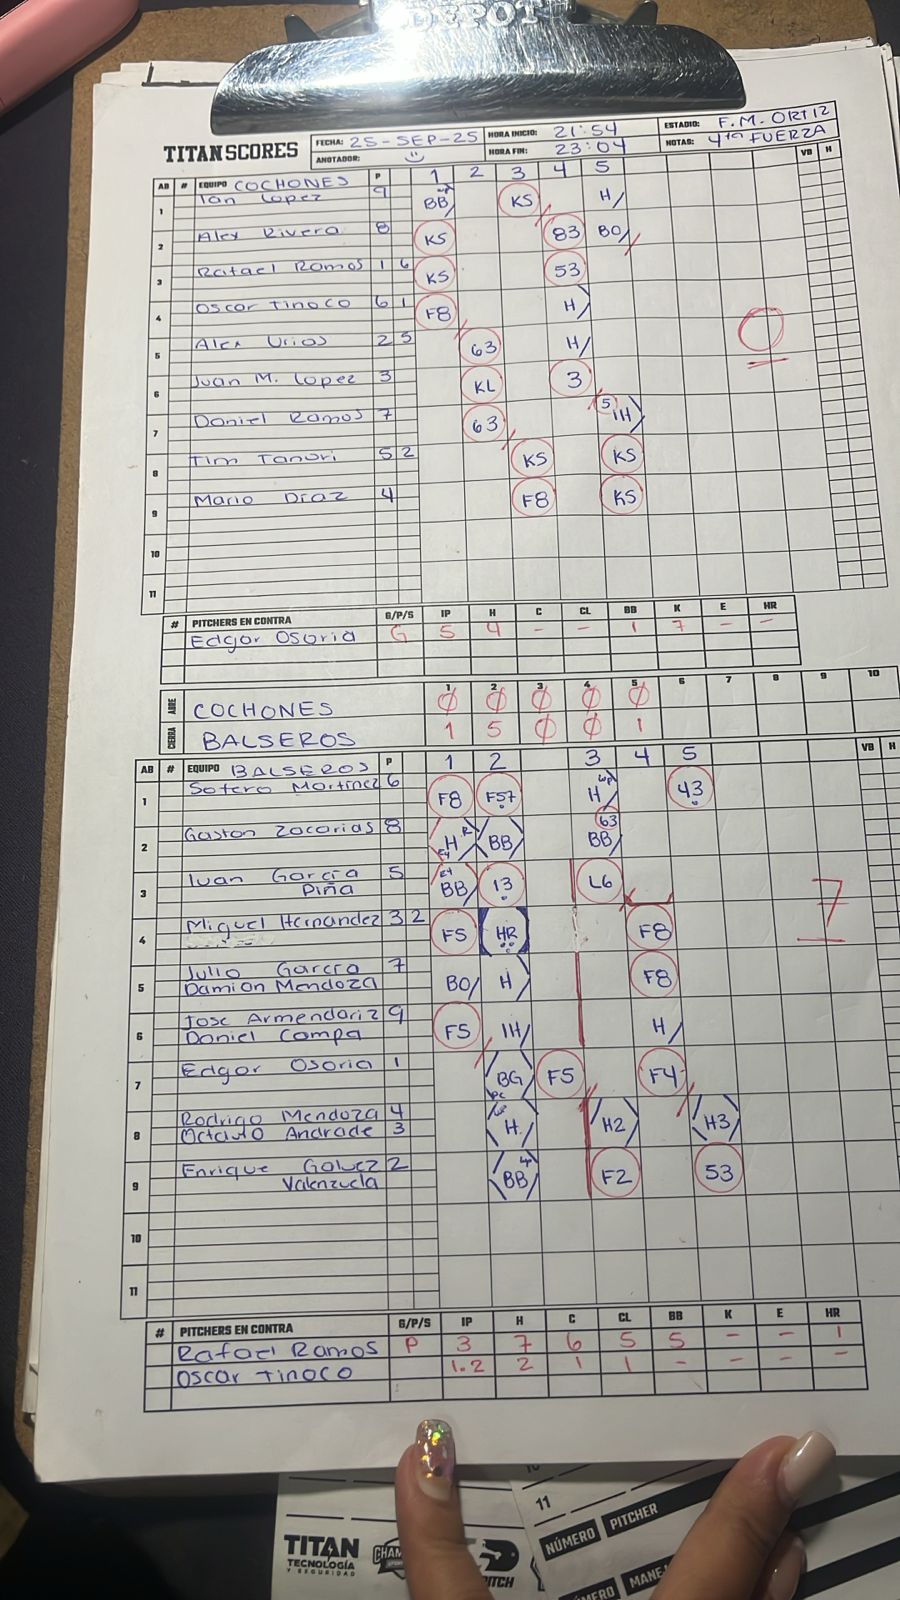 DEPOT
TITAN SCORES
FECHA: 25-SEP-25 HORA INICIO: 21:54 ESTADIO: F.M. ORTIZ
ANOTADOR: HORA FIN: 23:04 NOTAS: 4ta FUERZA
AB # EQUIPO COCHONES P 1 2 3 4 5 VB H
1 Ian Lopez 9 BB wp KS H
2 Alex Rivera 8 KS 83 BO
3 Rafael Ramos 1 6 KS 53
4 Oscar Tinoco 6 1 F8 H
5 Alex Urias 2 5 63 H
6 Juan M. Lopez 3 KL 3
7 Daniel Ramos 7 63 5 IH
8 Tim Tanori 5 2 KS KS
9 Mario Diaz 4 F8 KS
10
11
# PITCHERS EN CONTRA G/P/S IP H C CL BB K E HR
Edgar Osoria G 5 4 - - 1 7 - -
ABRE COCHONES 1 0 2 0 3 0 4 0 5 0 6 7 8 9 10
CIERRA BALSEROS 1 5 0 0 1
AB # EQUIPO BALSEROS P 1 2 3 4 5 VB H
1 Sotero Martinez 6 F8 F57 H wp 43
2 Gaston Zacarias 8 H R E4 BB 63 BB
3 Ivan Garcia 5 E4 BB 13 L6
Piña
4 Miguel Hernandez 3 2 F5 HR F8
5 Julio Garcia 7 BO H F8
Damion Mendoza
6 Jose Armendariz 9 F5 IH H
Daniel Campa
7 Edgar Osoria 1 BG F5 F4
8 Rodrigo Mendoza 4 H H2 H3
Octavio Andrade 3
9 Enrique Galvez 2 BB wp F2 53
Valenzuela
10
11
# PITCHERS EN CONTRA G/P/S IP H C CL BB K E HR
Rafael Ramos P 3 7 6 5 5 - - 1
Oscar Tinoco 1.2 2 1 1 - - - -
0
7
11
NÚMERO PITCHER
TITAN
TECNOLOGÍA
Y SEGURIDAD
CHAM
ITCH